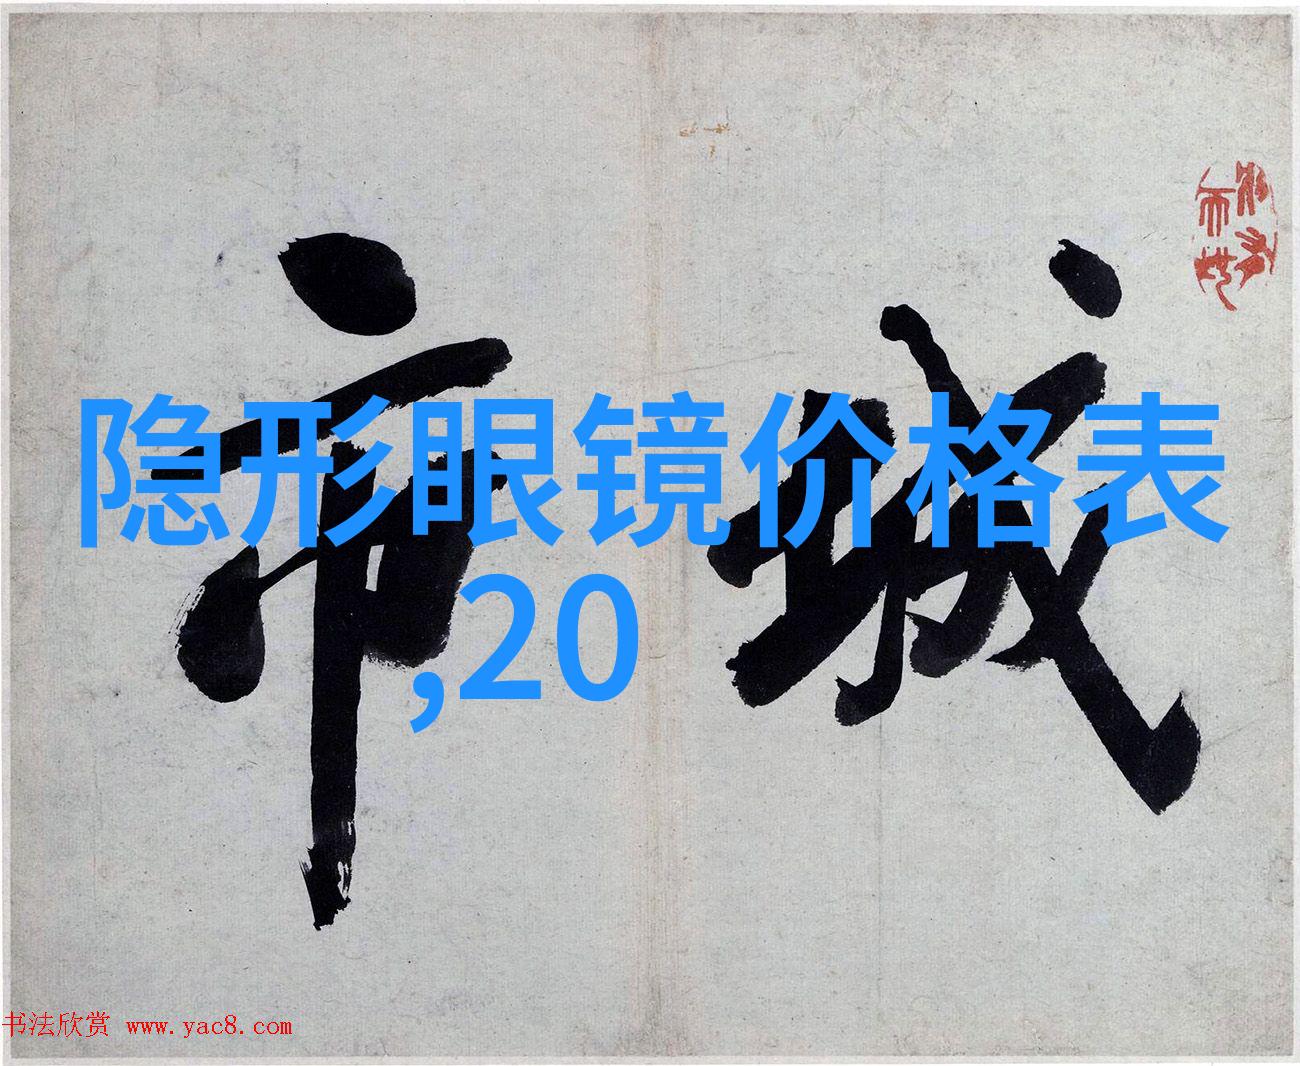 城市
隐形眼镜价格表
,20
书法欣赏 www.yac8.com